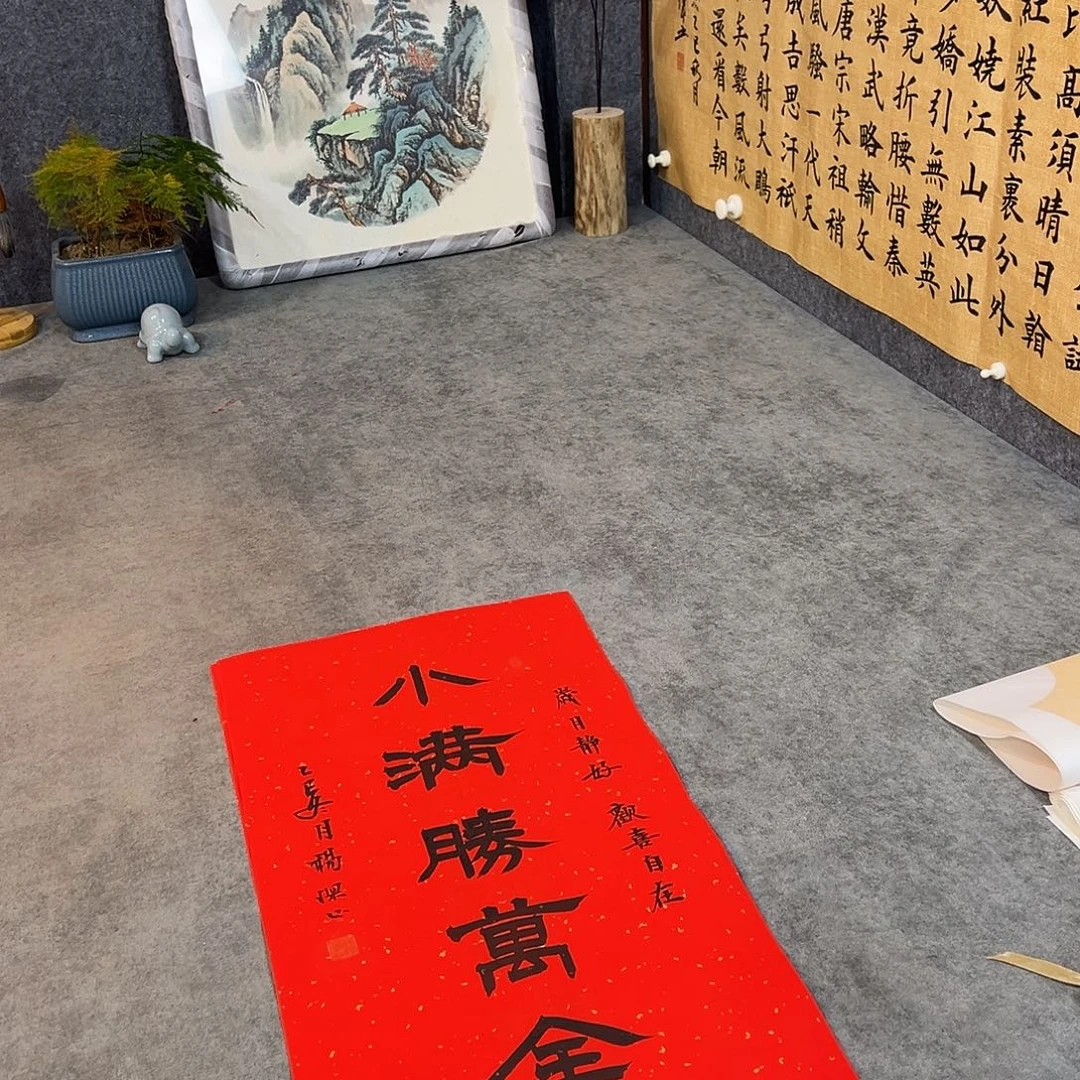 試
比高須晴日看
紅裝素裹分外
嬈江山如此
多嬌引無數英
竟折腰惜秦
漢武略輸文
唐宗宋祖稍
風騷一代天
成吉思汗祇
弓射大鵰
矣數風流
還看今朝
乙巳秋月
歲月静好 歡喜自在
小满勝萬全
乙巳夏月楊